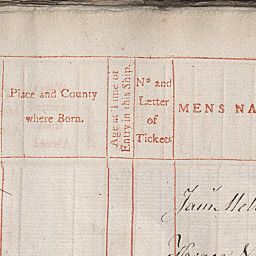 Place and County
where Born.
Age at Time of
Entry in this Ship.
No and
Lætter
of
Tickets
MENS NA